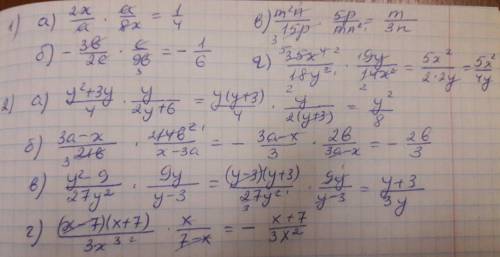 1) а) 2x/a · a/8x = 1/4   в) m²n/15p · 5p/mn² = m/3n
б) - 3b/2c · c/9b = - 1/6   г) 35x⁴/18y² · 9y/14x² = 5x²/2·2y = 5x²/4y
2) а) y²+3y/4 · y/2y+6 = y(y+3)/4 · y/2(y+3) = y²/8
б) 3a-x/21b · 14b²/x-3a = - 3a-x/3 · 2b/3a-x = - 2b/3
в) y²-9/27y² · 9y/y-3 = (y-3)(y+3)/27y² · 9y/y-3 = y+3/3y
г) (x-7)(x+7)/3x³ · x/7-x = - x+7/3x²